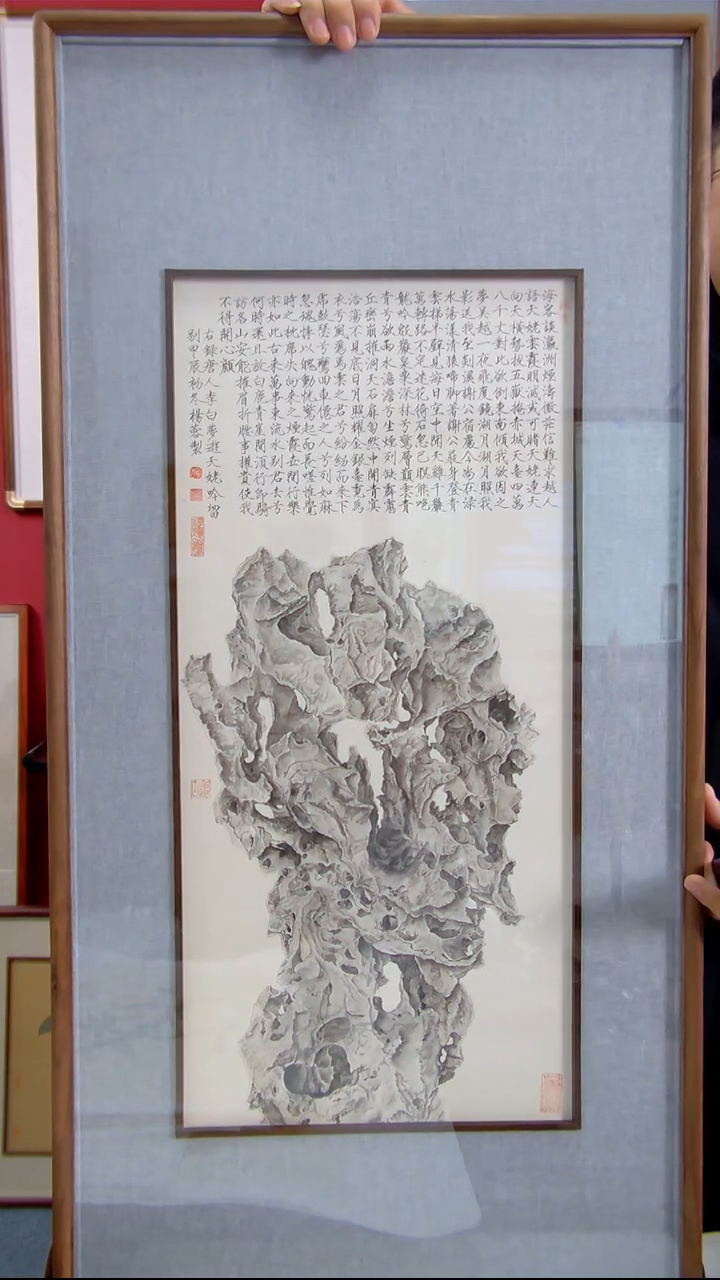 海客談瀛洲煙濤微茫信難求越人
語天姥雲霞明滅或可睹天姥連天
向天橫勢拔五嶽掩赤城天臺四萬
八千丈對此欲倒東南傾我欲因之
夢吳越一夜飛度鏡湖月湖月照我
影送我至剡溪謝公宿處今尚在淥
水蕩漾清猿啼腳著謝公屐身登青
雲梯半壁見海日空中聞天雞千巖
萬轉路不定迷花倚石忽已暝熊咆
龍吟殷巖泉栗深林兮驚層巔雲青
青兮欲雨水澹澹兮生煙列缺霹靂
丘巒崩摧洞天石扉訇然中開青冥
浩蕩不見底日月照耀金銀臺霓為
衣兮風為馬雲之君兮紛紛而來下
虎鼓瑟兮鸞回車僊之人兮列如麻
忽魂悸以魄動怳驚起而長嗟惟覺
時之枕席失向來之煙霞世間行樂
亦如此古來萬事東流水別君去兮
何時還且放白鹿青崖間須行即騎
訪名山安能摧眉折腰事權貴使我
不得開心顏
右錄唐人李白夢遊天姥吟留
別甲辰初冬楊蓉製